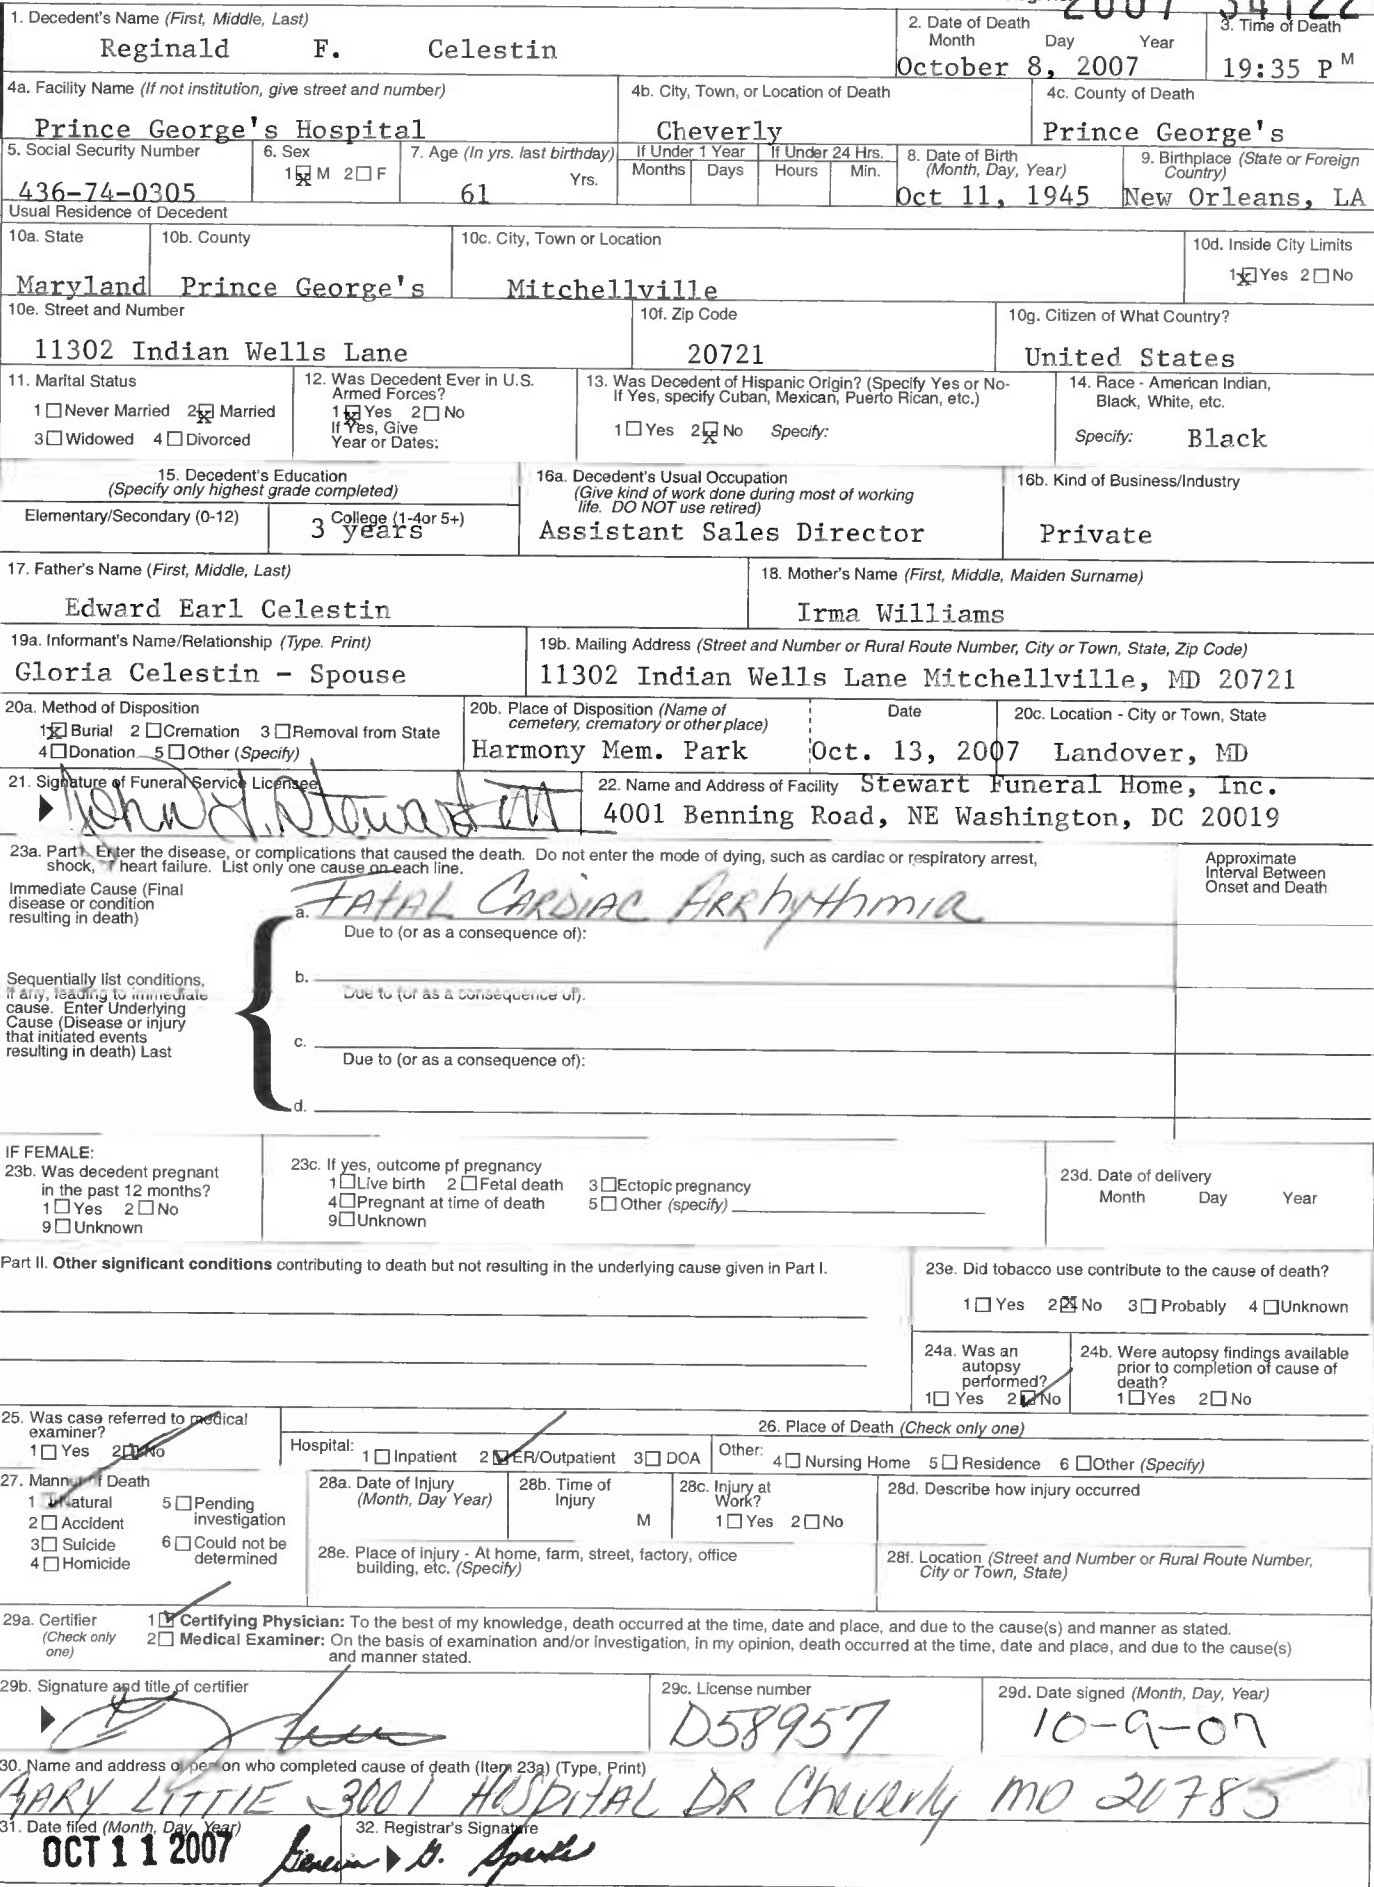 2007 34122
1. Decedent's Name (First, Middle, Last)
Reginald F. Celestin
2. Date of Death
Month Day Year
October 8, 2007
3. Time of Death
19:35 P M
4a. Facility Name (If not institution, give street and number)
Prince George's Hospital
4b. City, Town, or Location of Death
Cheverly
4c. County of Death
Prince George's
5. Social Security Number
436-74-0305
6. Sex
1 ☒ M 2 ☐ F
7. Age (In yrs. last birthday)
61 Yrs.
If Under 1 Year
Months Days
If Under 24 Hrs.
Hours Min.
8. Date of Birth
(Month, Day, Year)
Oct 11, 1945
9. Birthplace (State or Foreign
Country)
New Orleans, LA
Usual Residence of Decedent
10a. State
Maryland
10b. County
Prince George's
10c. City, Town or Location
Mitchellville
10d. Inside City Limits
1 ☒ Yes 2 ☐ No
10e. Street and Number
11302 Indian Wells Lane
10f. Zip Code
20721
10g. Citizen of What Country?
United States
11. Marital Status
1 ☐ Never Married 2 ☒ Married
3 ☐ Widowed 4 ☐ Divorced
12. Was Decedent Ever in U.S.
Armed Forces?
1 ☒ Yes 2 ☐ No
If Yes, Give
Year or Dates:
13. Was Decedent of Hispanic Origin? (Specify Yes or No-
If Yes, specify Cuban, Mexican, Puerto Rican, etc.)
1 ☐ Yes 2 ☒ No Specify:
14. Race - American Indian,
Black, White, etc.
Specify: Black
15. Decedent's Education
(Specify only highest grade completed)
Elementary/Secondary (0-12)
College (1-4or 5+)
3 years
16a. Decedent's Usual Occupation
(Give kind of work done during most of working
life. DO NOT use retired)
Assistant Sales Director
16b. Kind of Business/Industry
Private
17. Father's Name (First, Middle, Last)
Edward Earl Celestin
18. Mother's Name (First, Middle, Maiden Surname)
Irma Williams
19a. Informant's Name/Relationship (Type. Print)
Gloria Celestin - Spouse
19b. Mailing Address (Street and Number or Rural Route Number, City or Town, State, Zip Code)
11302 Indian Wells Lane Mitchellville, MD 20721
20a. Method of Disposition
1 ☒ Burial 2 ☐ Cremation 3 ☐ Removal from State
4 ☐ Donation 5 ☐ Other (Specify)
20b. Place of Disposition (Name of
cemetery, crematory or other place)
Harmony Mem. Park
Date
Oct. 13, 2007
20c. Location - City or Town, State
Landover, MD
21. Signature of Funeral Service Licensee
John T. Stewart III
22. Name and Address of Facility Stewart Funeral Home, Inc.
4001 Benning Road, NE Washington, DC 20019
23a. Part I. Enter the disease, or complications that caused the death. Do not enter the mode of dying, such as cardiac or respiratory arrest,
shock, heart failure. List only one cause on each line.
Approximate
Interval Between
Onset and Death
Immediate Cause (Final
disease or condition
resulting in death)
a. FATAL CARDIAC ARRhythmia
Due to (or as a consequence of):
Sequentially list conditions,
if any, leading to immediate
cause. Enter Underlying
Cause (Disease or injury
that initiated events
resulting in death) Last
b.
Due to (or as a consequence of):
c.
Due to (or as a consequence of):
d.
IF FEMALE:
23b. Was decedent pregnant
in the past 12 months?
1 ☐ Yes 2 ☐ No
9 ☐ Unknown
23c. If yes, outcome pf pregnancy
1 ☐ Live birth 2 ☐ Fetal death 3 ☐ Ectopic pregnancy
4 ☐ Pregnant at time of death 5 ☐ Other (specify)
9 ☐ Unknown
23d. Date of delivery
Month Day Year
Part II. Other significant conditions contributing to death but not resulting in the underlying cause given in Part I.
23e. Did tobacco use contribute to the cause of death?
1 ☐ Yes 2 ☒ No 3 ☐ Probably 4 ☐ Unknown
24a. Was an
autopsy
performed?
1 ☐ Yes 2 ☑ No
24b. Were autopsy findings available
prior to completion of cause of
death?
1 ☐ Yes 2 ☐ No
25. Was case referred to medical
examiner?
1 ☐ Yes 2 ☑ No
26. Place of Death (Check only one)
Hospital: 1 ☐ Inpatient 2 ☑ ER/Outpatient 3 ☐ DOA
Other: 4 ☐ Nursing Home 5 ☐ Residence 6 ☐ Other (Specify)
27. Manner of Death
1 ☑ Natural 5 ☐ Pending
investigation
2 ☐ Accident
3 ☐ Suicide 6 ☐ Could not be
determined
4 ☐ Homicide
28a. Date of Injury
(Month, Day Year)
28b. Time of
Injury
M
28c. Injury at
Work?
1 ☐ Yes 2 ☐ No
28d. Describe how injury occurred
28e. Place of injury - At home, farm, street, factory, office
building, etc. (Specify)
28f. Location (Street and Number or Rural Route Number,
City or Town, State)
29a. Certifier
(Check only
one)
1 ☑ Certifying Physician: To the best of my knowledge, death occurred at the time, date and place, and due to the cause(s) and manner as stated.
2 ☐ Medical Examiner: On the basis of examination and/or investigation, in my opinion, death occurred at the time, date and place, and due to the cause(s)
and manner stated.
29b. Signature and title of certifier
29c. License number
D58957
29d. Date signed (Month, Day, Year)
10-9-07
30. Name and address of person who completed cause of death (Item 23a) (Type, Print)
GARY LITTLE 3001 HOSPITAL DR Cheverly MD 20785
31. Date filed (Month, Day, Year)
OCT 11 2007
32. Registrar's Signature
Geneva G. Sparks